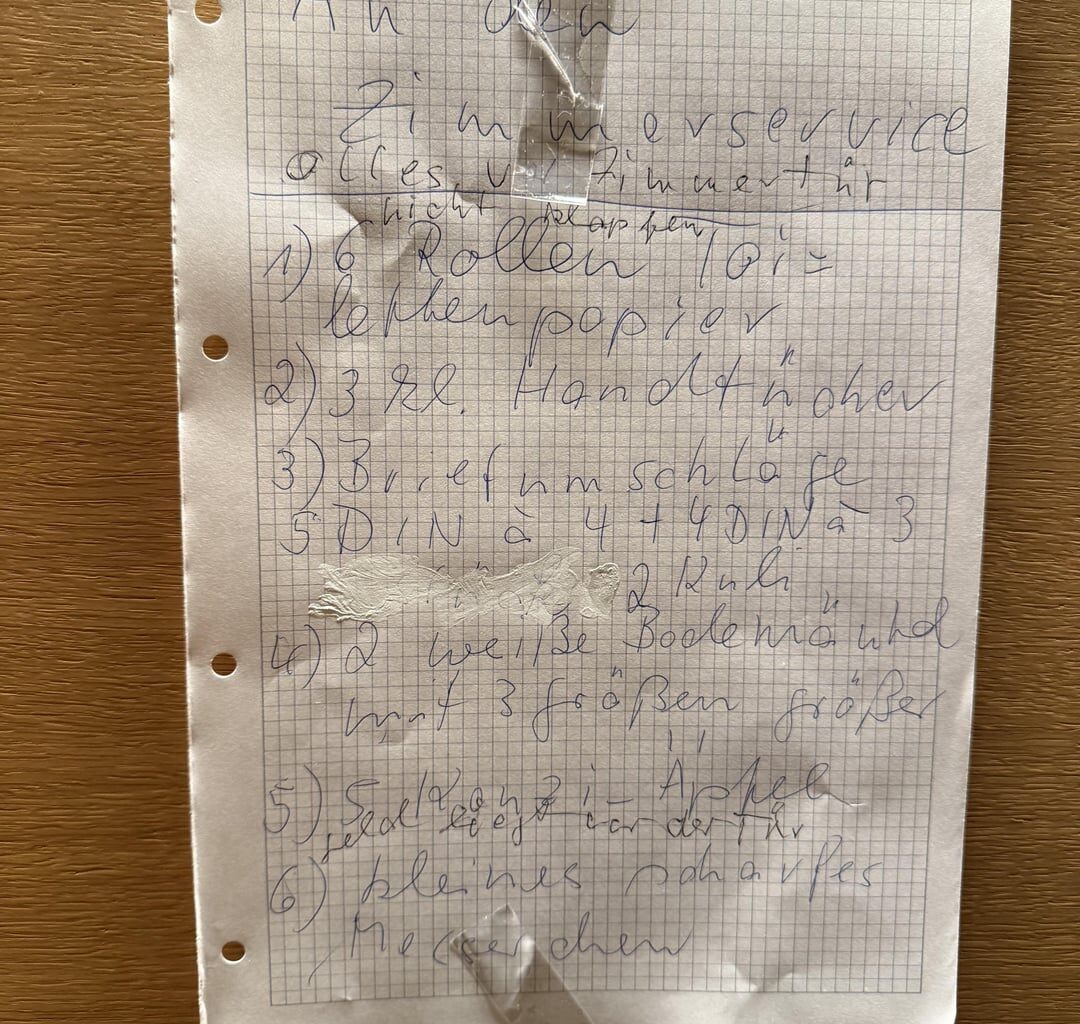 An den
Zimmerservice
alles v. Zimmertür
nicht klappen
1) 6 Rollen Toi=
lettenpapier
2) 3 kl. Handtücher
3) Briefumschläge
5 DIN à 4 + 4 DIN à 3
2 Kuli
4) 2 weiße Bademäntel
mit 3 größen größer
5) 5 Äpfel
geld liegt vor der Tür
6) kleines scharfes
Messerchen